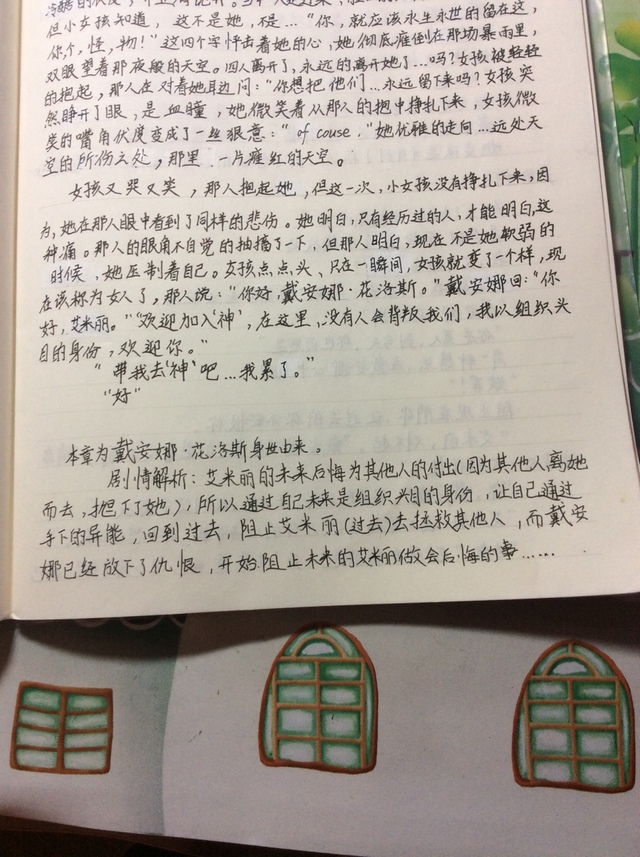 但小女孩知道，这不是她，不是…“你，就应该永生永世的留在这，
你个，怪，物！”这四个字怦击着她的心，她彻底瘫倒在那场暴雨里，
双眼望着那夜般的天空。四人离开了，永远的离开她了…吗？女孩被轻轻
的抱起，那人在对着她耳边问：“你想把他们…永远留下来吗？女孩突
然睁开了眼，是血瞳，她微笑着从那人的抱中挣扎下来，女孩微
笑的嘴角伏度变成了一丝狠意：“of couse．”她优雅的走向…远处天
空的所伤之处，那里．一片瘫红的天空。
女孩又哭又笑，那人抱起她，但这一次，小女孩没有挣扎下来，因
为，她在那人眼中看到了同样的悲伤。她明白，只有经历过的人，才能明白，这
种痛。那人的眼角不自觉的抽搐了一下，但那人明白，现在不是她软弱的
时候，她压制着自己。女孩点点头、只在一瞬间，女孩就变了一个样，现
在该称为女人了，那人说：“你好，戴安娜·花洛斯。”戴安娜回：“你
好，艾米丽。”“欢迎加入‘神’，在这里，没有人会背叛我们，我以组织头
目的身份，欢迎你。”
“带我去‘神’吧…我累了。”
“好”
本章为戴安娜·花洛斯身世由来。
剧情解析：艾米丽的未来后悔为其他人的付出（因为其他人离她
而去，抛下了她），所以通过自己未来是组织头目的身份，让自己通过
手下的异能，回到过去，阻止艾米丽（过去）去拯救其他人，而戴安
娜已经放下了仇恨，开始阻止未来的艾米丽做会后悔的事……